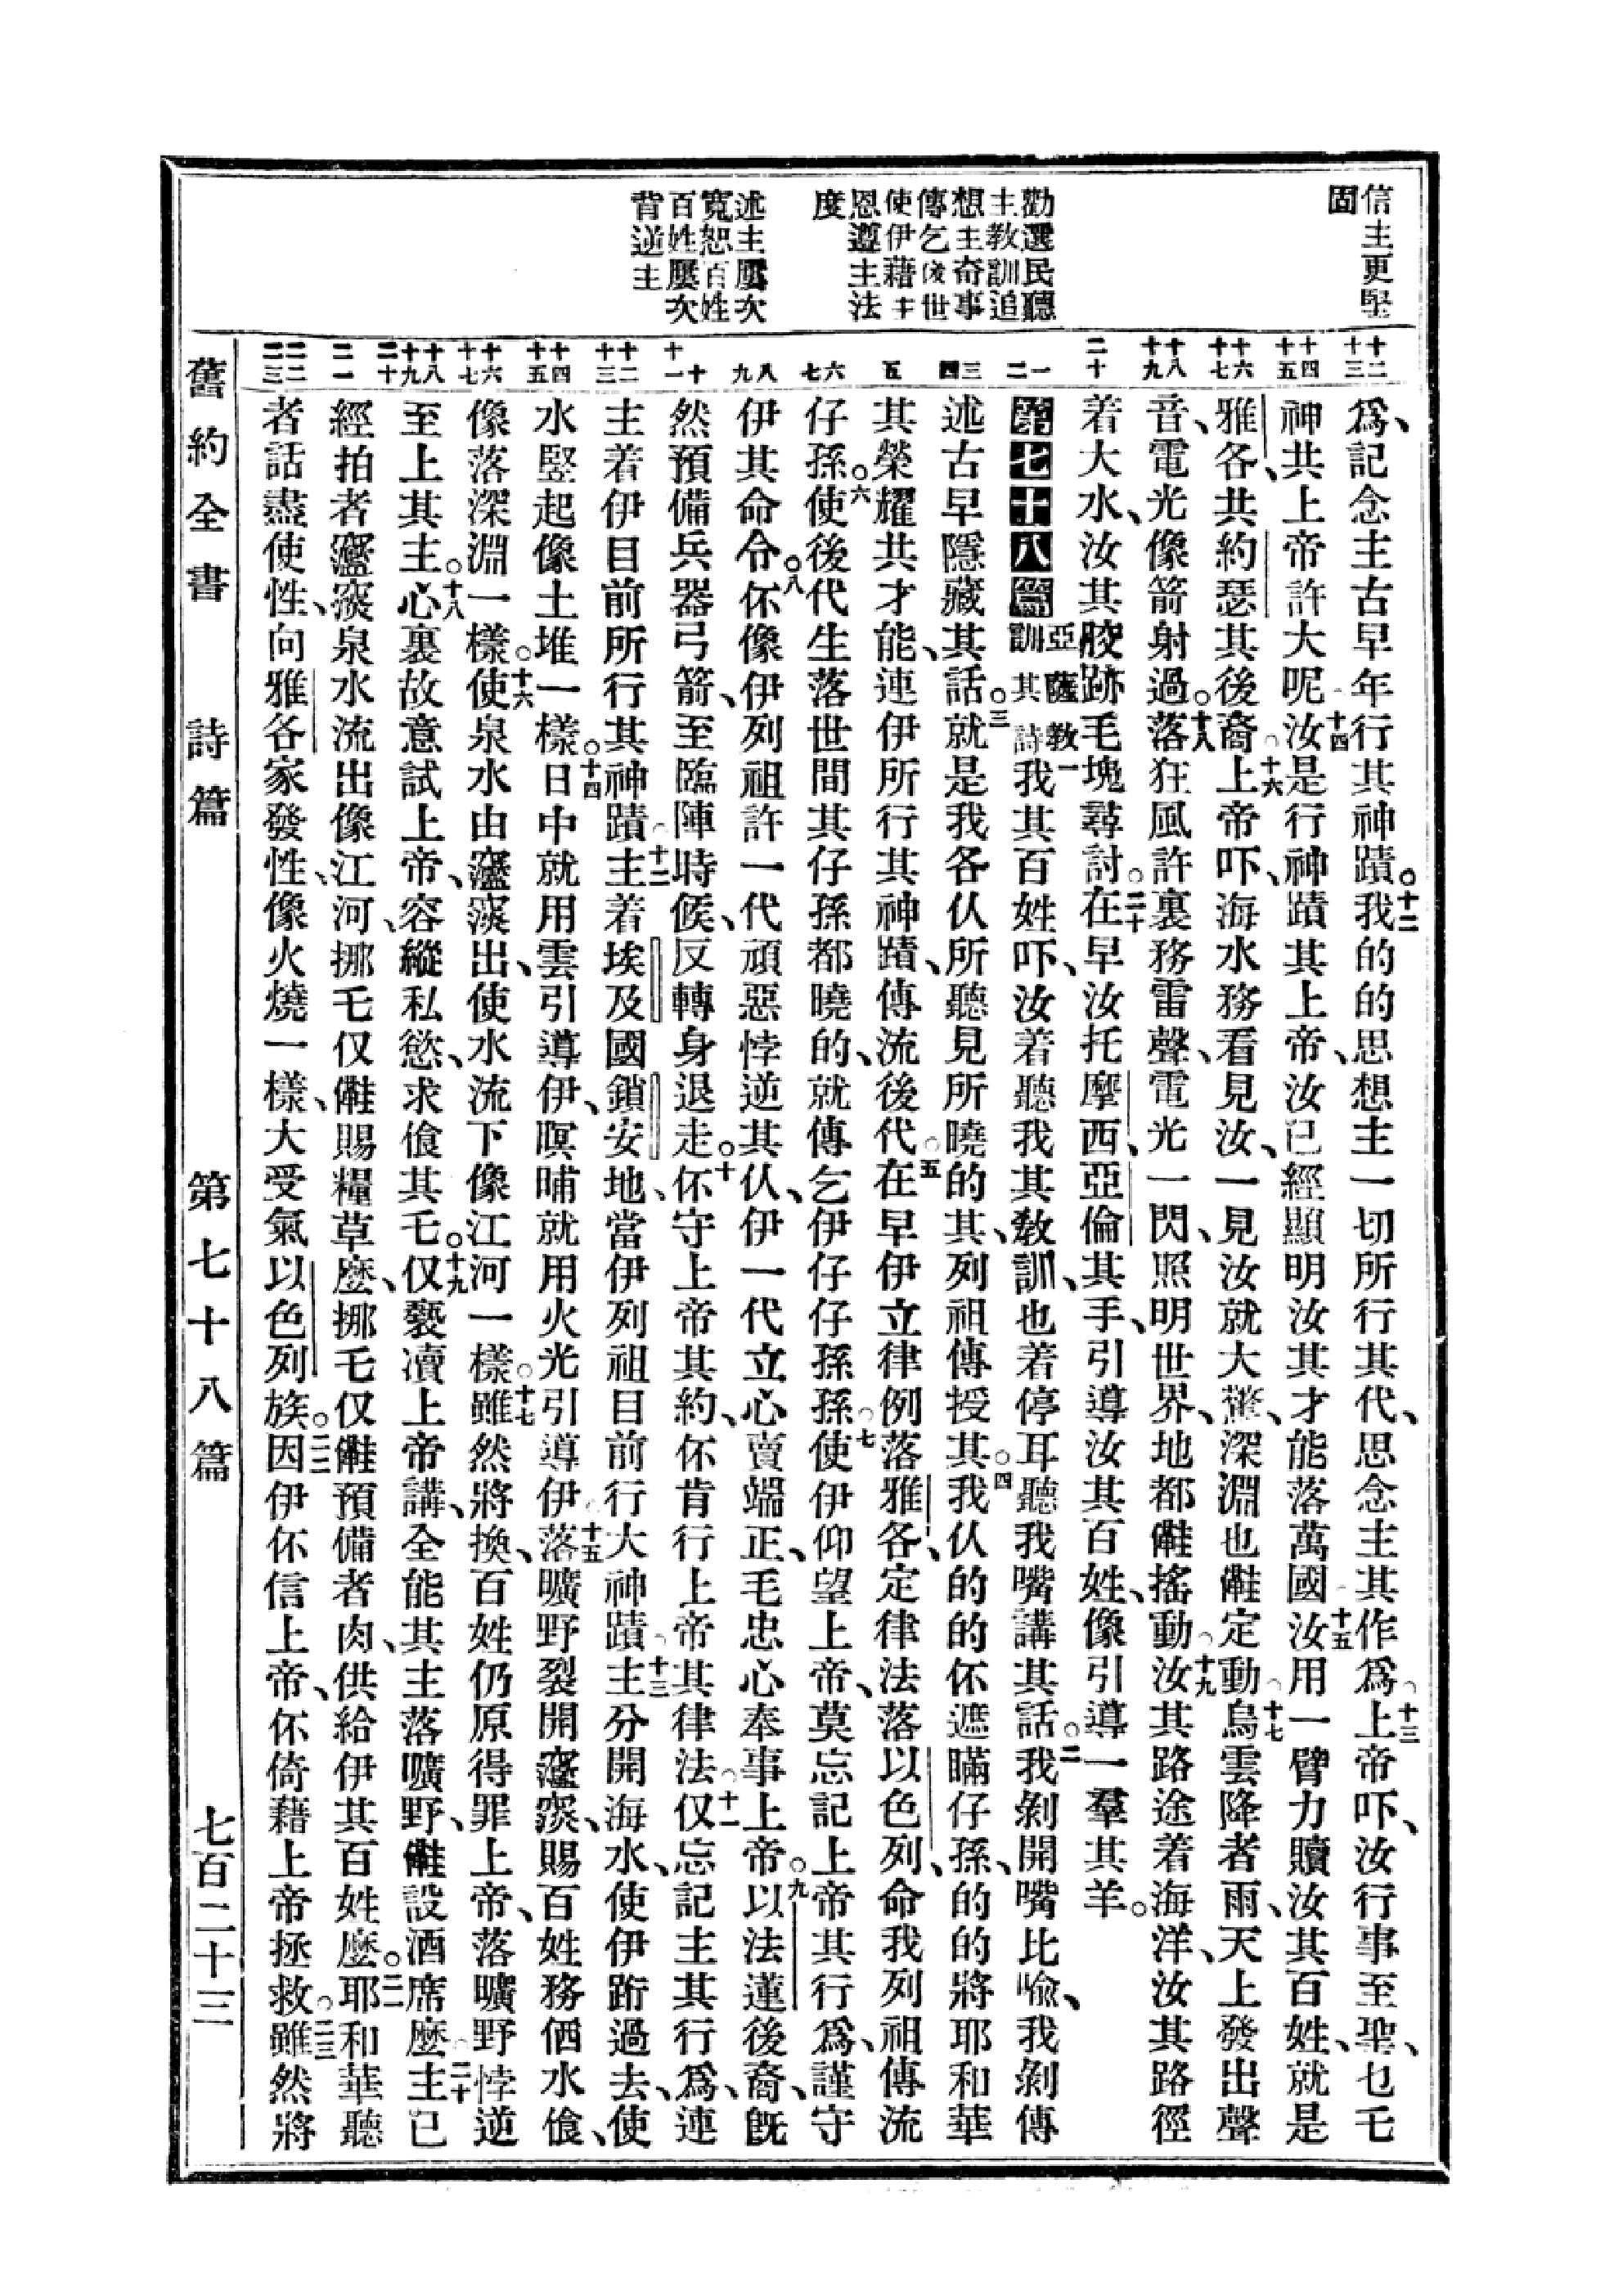 信主更堅
固
勸選民聽
主教訓追
想主奇事
傳乞後世
使伊藉主
恩遵主法
度
述主屢次
寬恕百姓
百姓屢次
背逆主
十二 十三
十四 十五
十六 十七
十八 十九
二十
一 二
三 四
五
六 七
八 九
十 十一
十二 十三
十四 十五
十六 十七
十八 十九 二十
二一
二二 二三
爲、記念主古早年行其神蹟。十二我的的思想主一切所行其代、思念主其作爲。十三上帝吓、汝行事至聖、乜乇
神共上帝許大呢。十四汝是行神蹟其上帝、汝已經顯明汝其才能落萬國。十五汝用一臂力贖汝其百姓、就是
雅各、共約瑟其後裔。十六上帝吓、海水務看見汝、一見汝就大驚、深淵也𤲍定動。十七烏雲降者雨、天上發出聲
音、電光像箭射過。十八落狂風許裏務雷聲、電光一閃、照明世界、地都𤲍搖動。十九汝其路途着海洋、汝其路徑
着大水、汝其骹跡毛塊尋討。二十在早汝托摩西、亞倫其手、引導汝其百姓、像引導一羣其羊。
第七十八篇 亞薩教訓其詩 一我其百姓吓、汝着聽我其教訓、也着停耳聽我嘴講其話。二我剝開嘴比喻、我剝傳
述古早隱藏其話。三就是我各仈所聽見所曉的其、列祖傳授其。四我仈的的伓遮瞞仔孫、的的將耶和華
其榮耀共才能、連伊所行其神蹟、傳流後代。五在早伊立律例落雅各、定律法落以色列、命我列祖傳流
仔孫。六使後代生落世間其仔孫都曉的、就傳乞伊仔仔孫孫。七使伊仰望上帝、莫忘記上帝其行爲、謹守
伊其命令。八伓像伊列祖許一代頑惡悖逆其仈、伊一代立心賣端正、毛忠心奉事上帝。九以法蓮後裔、旣
然預備兵器弓箭、至臨陣時候、反轉身退走。十伓守上帝其約、伓肯行上帝其律法。十一仅忘記主其行爲、連
主着伊目前所行其神蹟。十二主着埃及國鎖安地、當伊列祖目前行大神蹟。十三主分開海水、使伊跀過去、使
水竪起像土堆一樣。十四日中就用雲引導伊、暝晡就用火光引導伊。十五落曠野裂開𥖁𥥆、賜百姓務𠲥水飧、
像落深淵一樣。十六使泉水由𥖁𥥆出、使水流下像江河一樣。十七雖然將換、百姓仍原得罪上帝、落曠野悖逆
至上其主。十八心裏故意試上帝、容縱私慾、求飧其乇。十九仅褻瀆上帝講、全能其主落曠野、𤲍設酒席麽。二十主已
經拍者𥖁𥥆泉水流出像江河、挪乇仅𤲍賜糧草麽、挪乇仅𤲍預備者肉、供給伊其百姓麽。二一耶和華聽
者話盡使性、向雅各家發性、像火燒一樣、大受氣以色列族。二二因伊伓信上帝、伓倚藉上帝拯救。二三雖然將
舊約全書 詩篇 第七十八篇 七百二十三